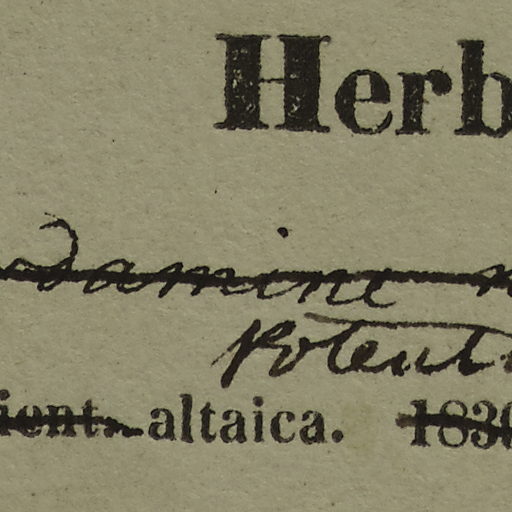 Herb
damine
Potent
ient. altaica. 1830